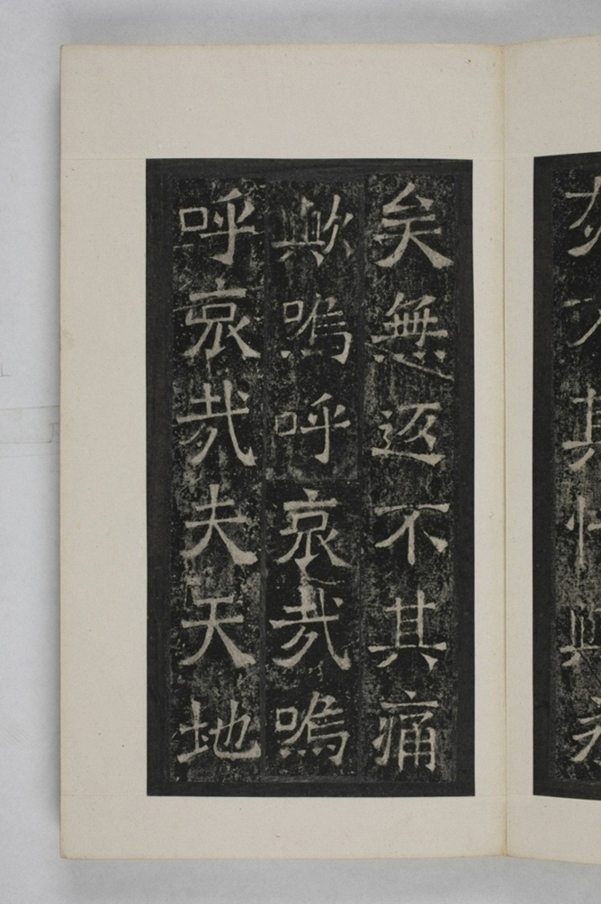 矣無返不其痛
歟嗚呼哀哉嗚
呼哀哉夫天地
其